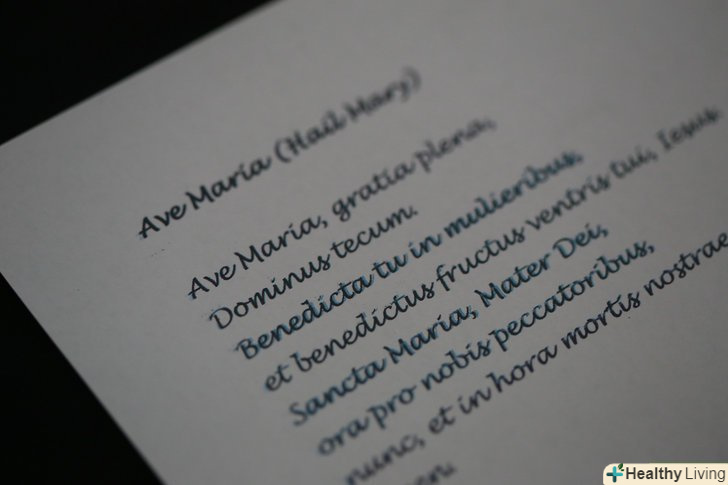 Ave Maria (Hail Mary)
Ave Maria, gratia plena,
Dominus tecum.
Benedicta tu in mulieribus,
et benedictus fructus ventris tui, Iesus.
Sancta Maria, Mater Dei,
ora pro nobis peccatoribus,
nunc, et in hora mortis nostrae
Healthy Living